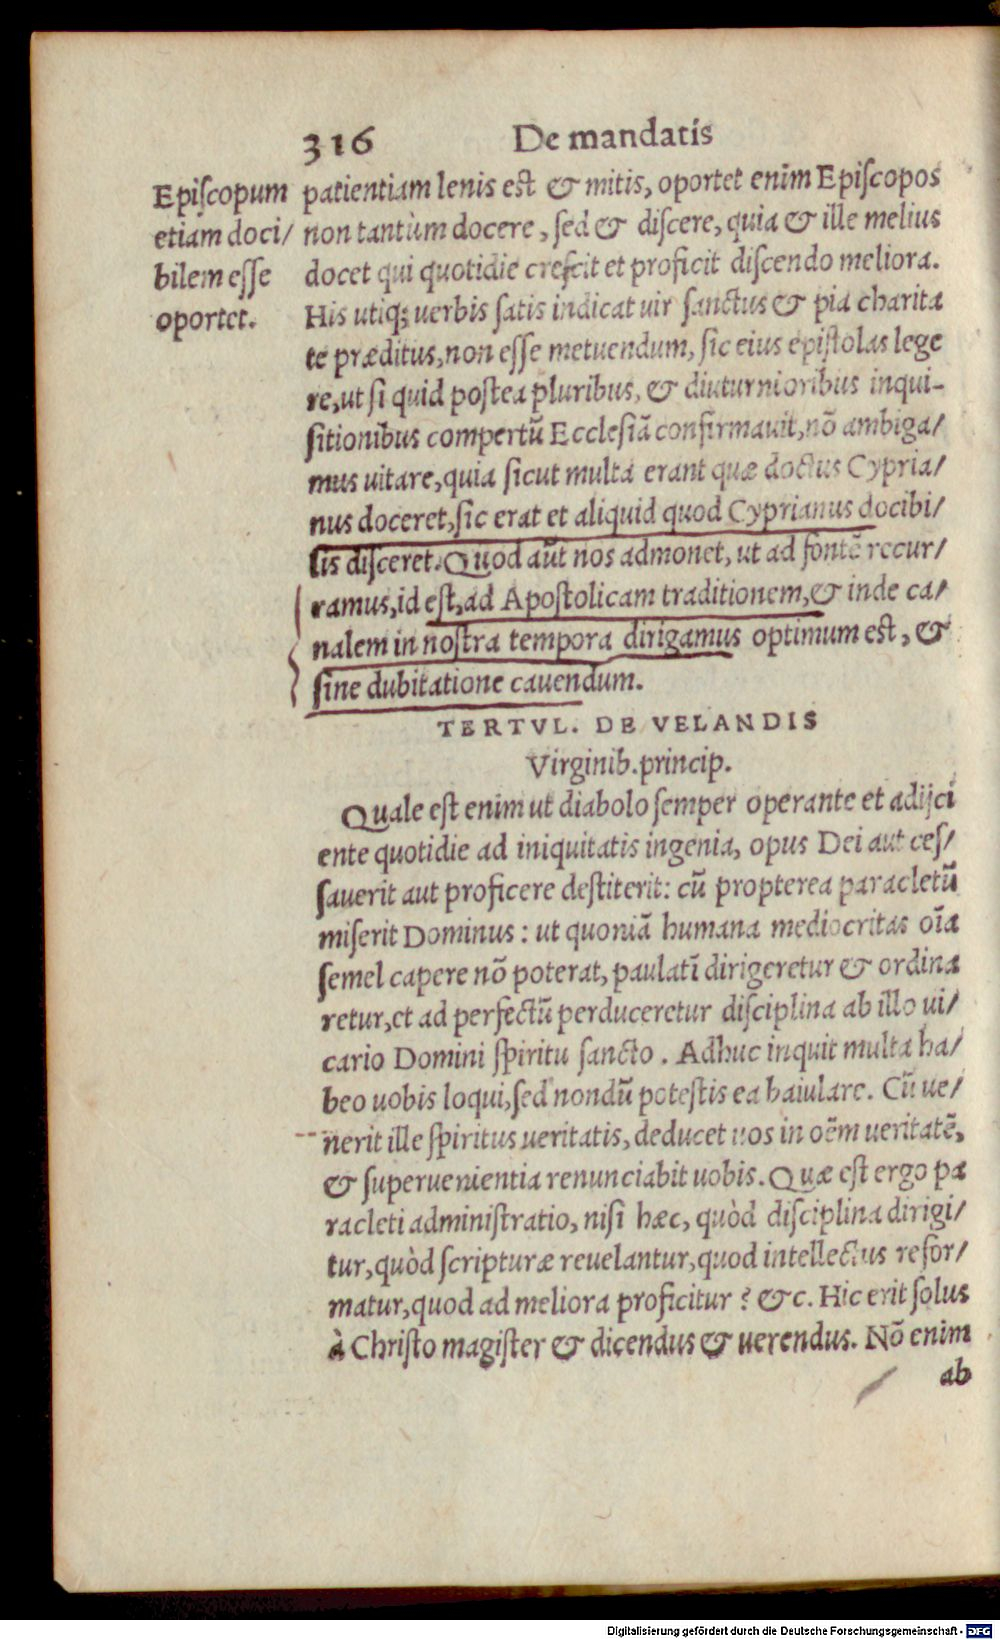 316 De mandatis
Episcopum
etiam doci/
bilem esse
oportet.
patientiam lenis est & mitis, oportet enim Episcopos
non tantùm docere, sed & discere, quia & ille melius
docet qui quotidie crescit et proficit discendo meliora.
His utiq; uerbis satis indicat uir sanctus & pia charita
te præditus, non esse metuendum, sic eius epistolas lege
re, ut si quid postea pluribus, & diuturnioribus inqui-
sitionibus compertũ Ecclesiã confirmauit, nõ ambiga/
mus uitare, quia sicut multa erant quæ doctus Cypria/
nus doceret, sic erat et aliquid quod Cyprianus docibi/
lis disceret. Quod aũt nos admonet, ut ad fontẽ recur/
ramus, id est, ad Apostolicam traditionem, & inde ca/
nalem in nostra tempora dirigamus optimum est, &
sine dubitatione cauendum.
TERTVL. DE VELANDIS
Virginib. princip.
Quale est enim ut diabolo semper operante et adijci
ente quotidie ad iniquitatis ingenia, opus Dei aut ces/
sauerit aut proficere destiterit: cũ propterea paracletũ
miserit Dominus: ut quoniã humana mediocritas oĩa
semel capere nõ poterat, paulatĩ dirigeretur & ordina
retur, et ad perfectũ perduceretur disciplina ab illo ui/
cario Domini spiritu sancto. Adhuc inquit multa ha/
beo uobis loqui, sed nondũ potestis ea baiulare. Cũ ue/
nerit ille spiritus ueritatis, deducet uos in oẽm ueritatẽ,
& superuenientia renunciabit uobis. Quæ est ergo pa
racleti administratio, nisi hæc, quòd disciplina dirigi/
tur, quòd scripturæ reuelantur, quod intellectus refor/
matur, quod ad meliora proficitur? &c. Hic erit solus
à Christo magister & dicendus & uerendus. Nõ enim
ab
Digitalisierung gefördert durch die Deutsche Forschungsgemeinschaft - DFG